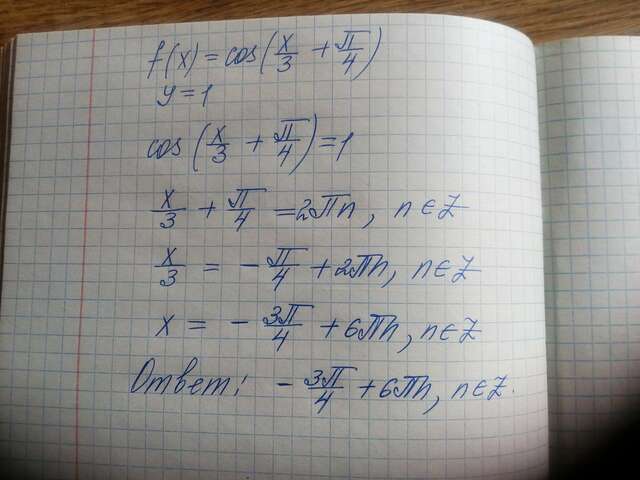 f(x) = cos(x/3 + π/4)
y = 1
cos(x/3 + π/4) = 1
x/3 + π/4 = 2πn, n ∈ Z
x/3 = - π/4 + 2πn, n ∈ Z
x = - 3π/4 + 6πn, n ∈ Z
Ответ: - 3π/4 + 6πn, n ∈ Z.